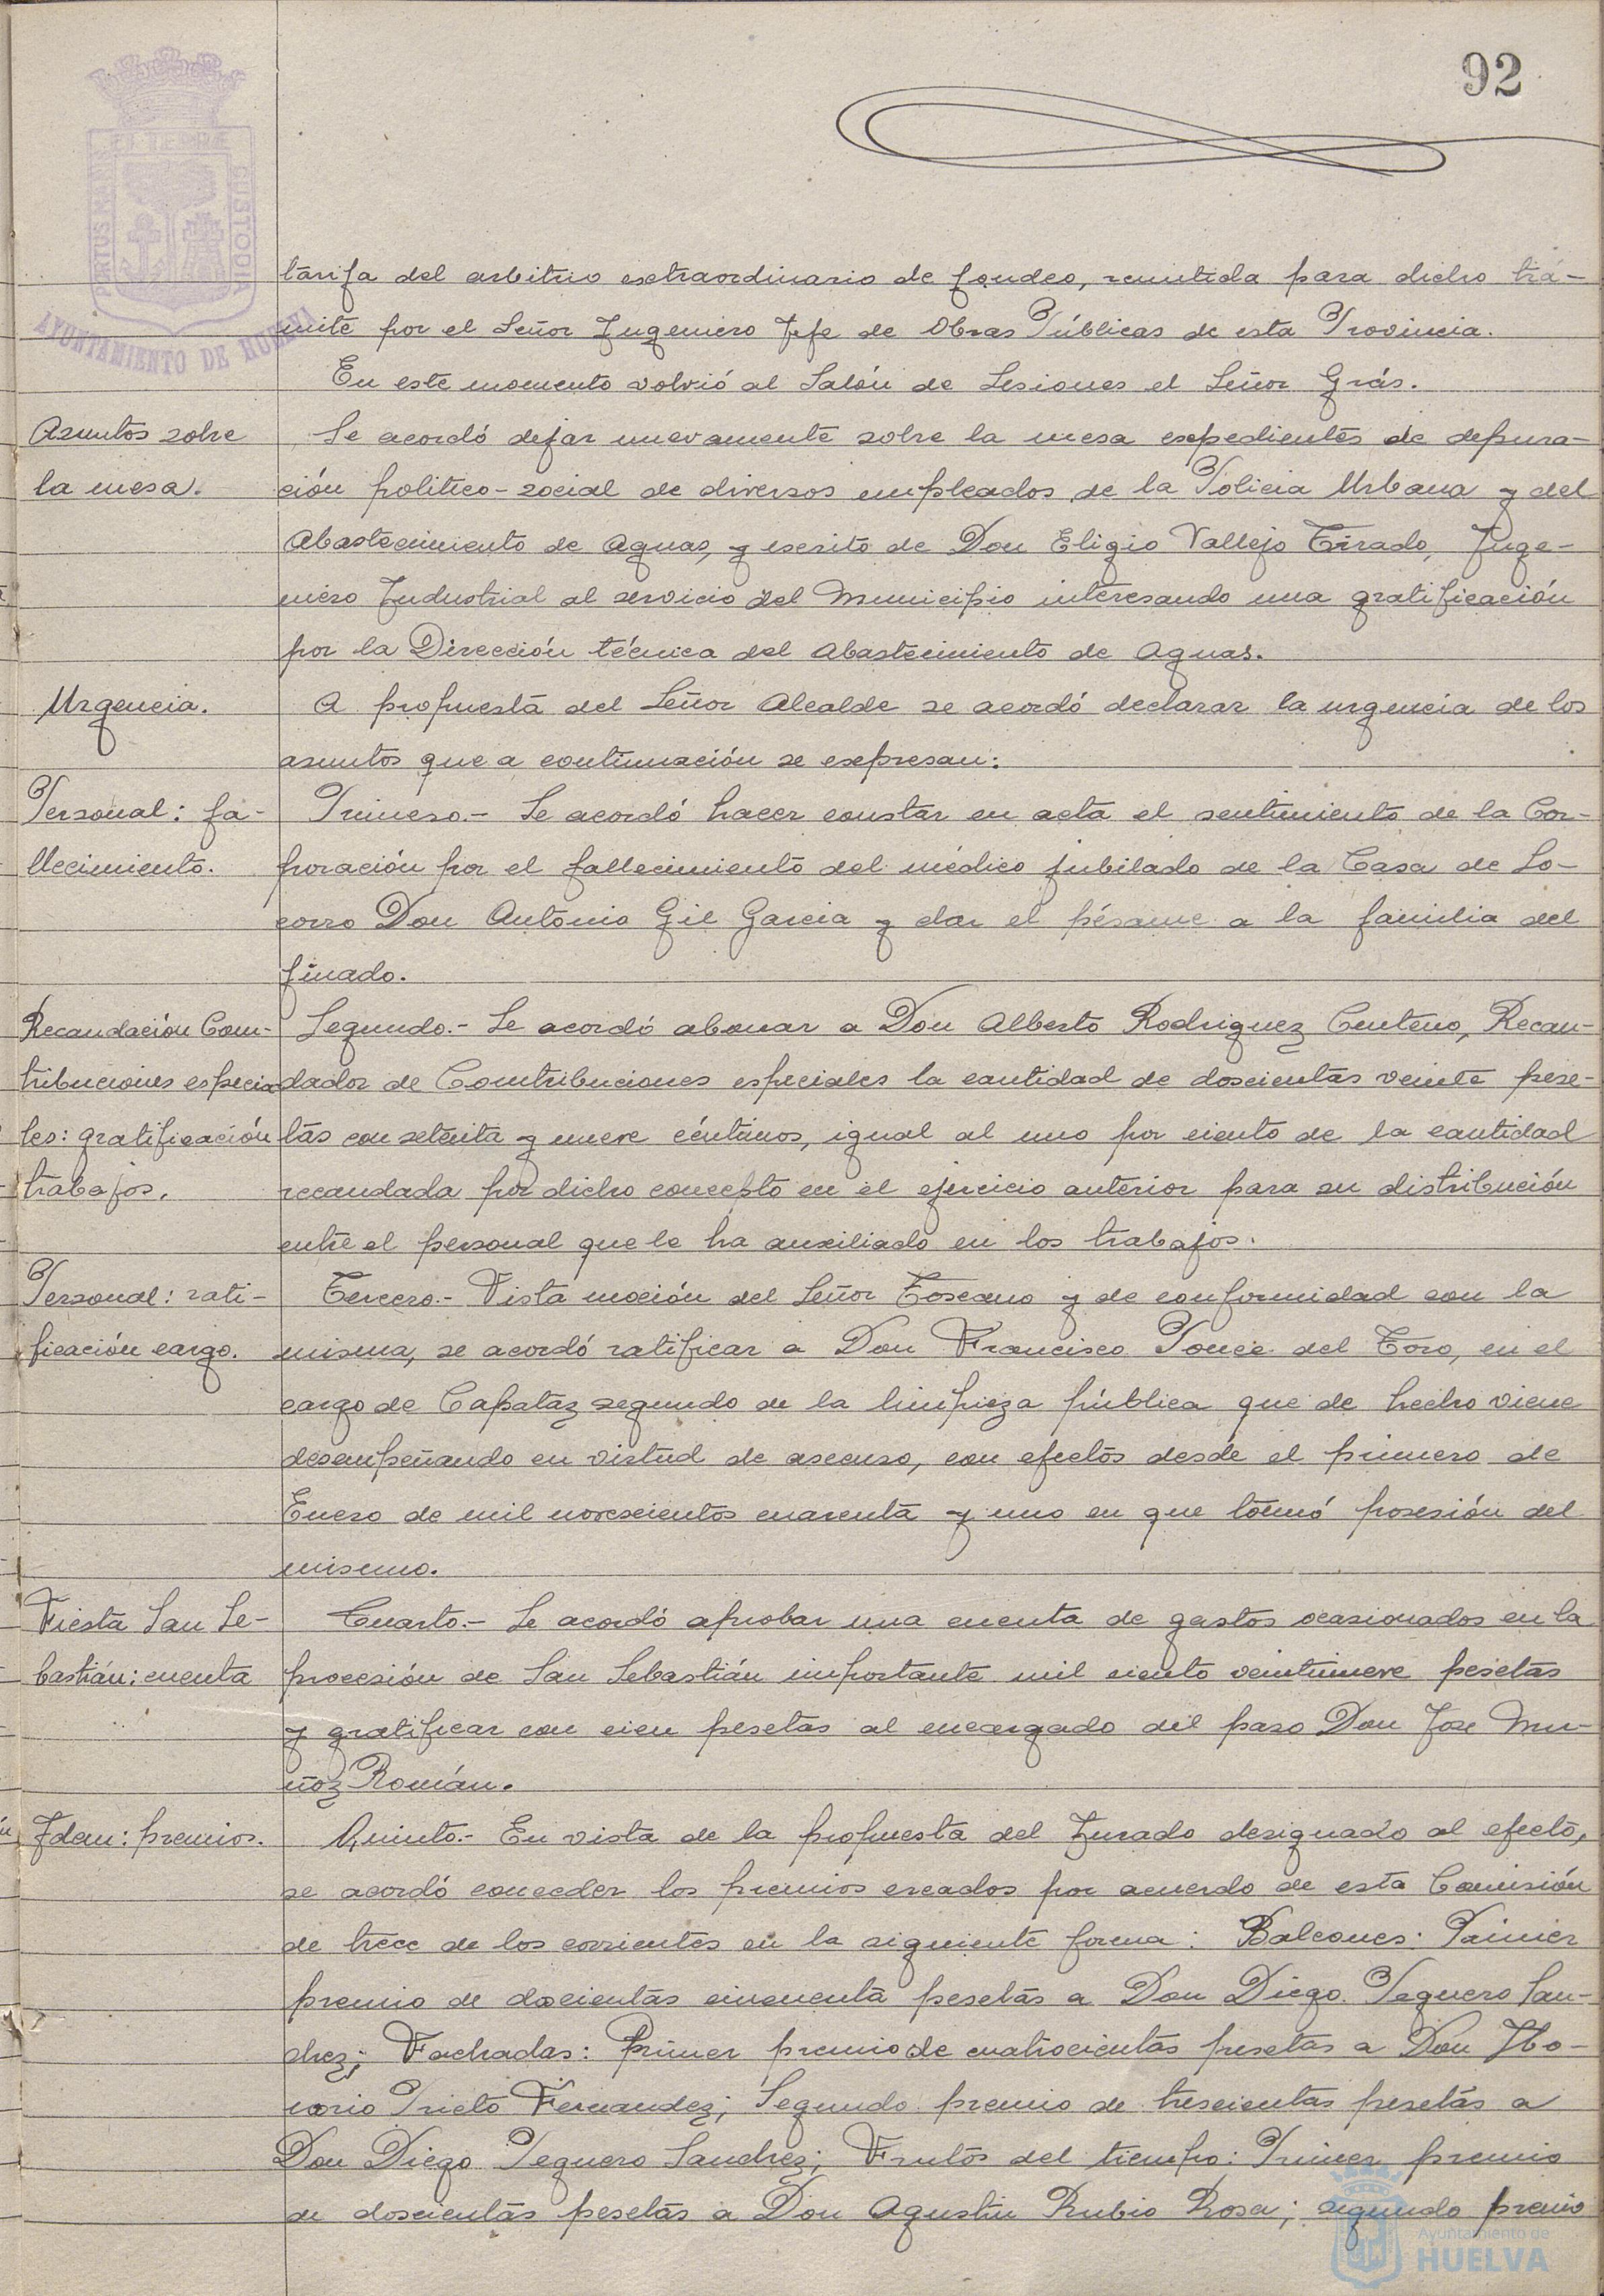 92
PORTUS MARIS ET TERRÆ CUSTODIA
AYUNTAMIENTO DE HUELVA
tarifa del arbitrio extraordinario de fondeo, remitida para dicho trá-
mite por el Señor Ingeniero Jefe de Obras Públicas de esta Provincia.
En este momento volvió al Salón de Sesiones el Señor Grás.
Asuntos sobre
la mesa.
Se acordó dejar nuevamente sobre la mesa expedientes de depura-
ción politico-social de diversos empleados de la Policia Urbana y del
Abastecimiento de Aguas, y escrito de Don Eligio Vallejo Tirado, Inge-
niero Industrial al servicio del Municipio interesando una gratificación
por la Dirección técnica del Abastecimiento de Aguas.
Urgencia.
A propuesta del Señor Alcalde se acordó declarar la urgencia de los
asuntos que a continuación se expresan:
Personal: fa-
llecimiento.
Primero.- Se acordó hacer constar en acta el sentimiento de la Cor-
poración por el fallecimiento del médico jubilado de la Casa de So-
corro Don Antonio Gil Garcia y dar el pésame a la familia del
finado.
Recaudación Con-
tribuciones especia
les: gratificación
trabajos.
Segundo.- Se acordó abonar a Don Alberto Rodriguez Centeno, Recau-
dador de Contribuciones especiales la cantidad de doscientas veinte pese-
tas con setenta y nueve céntimos, igual al uno por ciento de la cantidad
recaudada por dicho concepto en el ejercicio anterior para su distribución
entre el personal que le ha auxiliado en los trabajos.
Personal: rati-
ficación cargo.
Tercero.- Vista moción del Señor Toscano y de conformidad con la
misma, se acordó ratificar a Don Francisco Ponce del Toro, en el
cargo de Capataz segundo de la limpieza pública que de hecho viene
desempeñando en virtud de ascenso, con efectos desde el primero de
Enero de mil novescientos cuarenta y uno en que tomó posesión del
mismo.
Fiesta San Se-
bastián: cuenta
Cuarto.- Se acordó aprobar una cuenta de gastos ocasionados en la
procesión de San Sebastián importante mil ciento veintinueve pesetas
y gratificar con cien pesetas al encargado del paso Don Jose Mu-
ñoz Román.
Idem: premios.
Quinto.- En vista de la propuesta del Jurado designado al efecto,
se acordó conceder los premios creados por acuerdo de esta Comisión
de trece de los corrientes en la siguiente forma: Balcones: Primer
premio de doscientas cincuenta pesetas a Don Diego Peguero San-
chez; Fachadas: Primer premio de cuatrocientas pesetas a Don Ho-
norio Prieto Fernandez; Segundo premio de trescientas pesetas a
Don Diego Peguero Sanchez; Frutos del tiempo: Primer premio
de doscientas pesetas a Don Agustin Rubio Rosa; segundo premio
Ayuntamiento de
HUELVA